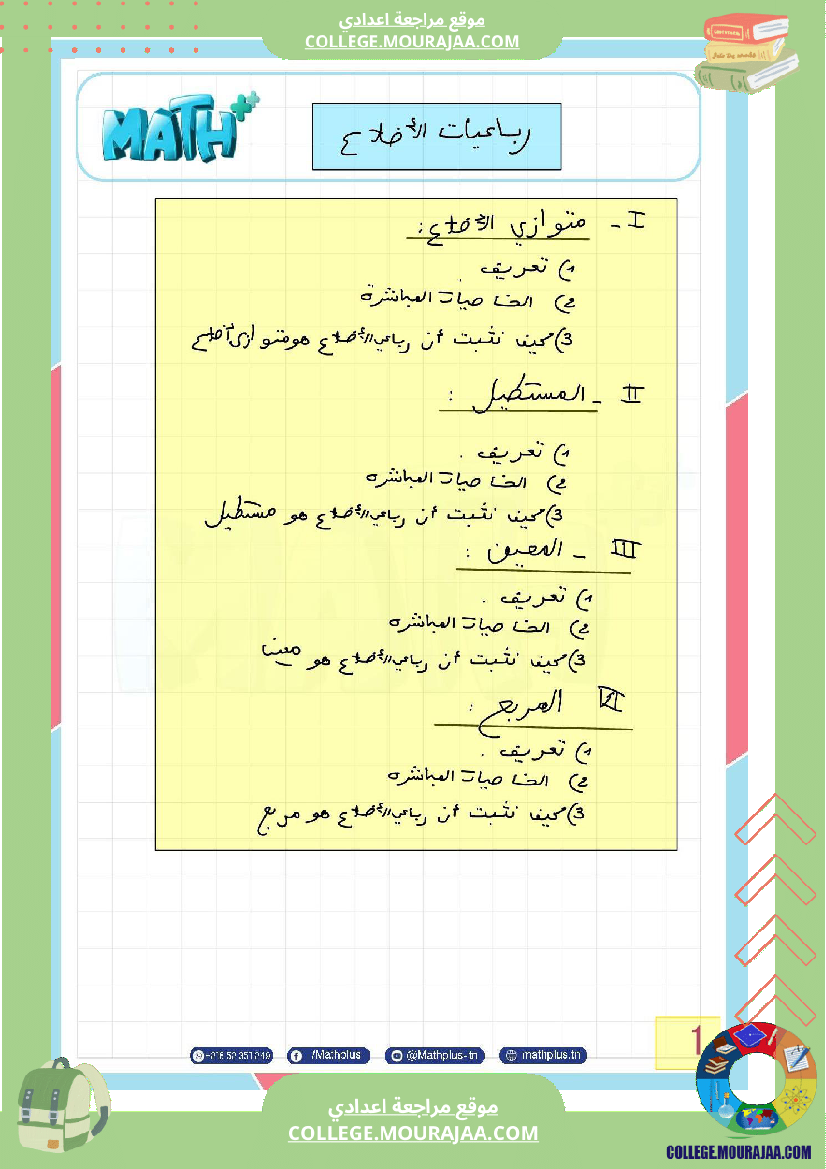 موقع مراجعة اعدادي
COLLEGE.MOURAJAA.COM
MATH+
رباعيات الأضلاع
I - متوازي الأضلاع :
1) تعريف .
2) الخاصيات المباشرة
3) كيف نثبت أن رباعي الأضلاع هو متوازي أضلاع
II - المستطيل :
1) تعريف .
2) الخاصيات المباشرة
3) كيف نثبت أن رباعي الأضلاع هو مستطيل
III - المعين :
1) تعريف .
2) الخاصيات المباشرة
3) كيف نثبت أن رباعي الأضلاع هو معين
المربع :
1) تعريف .
2) الخاصيات المباشرة
3) كيف نثبت أن رباعي الأضلاع هو مربع
1
/Mathplus
@Mathplus-tn
mathplus.tn
موقع مراجعة اعدادي
COLLEGE.MOURAJAA.COM
COLLEGE.MOURAJAA.COM